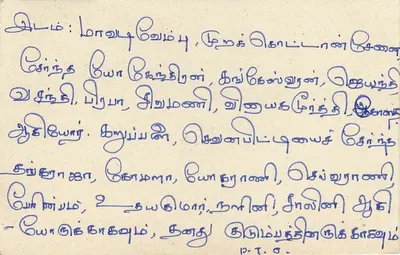 இடம்: மாவடிவேம்பு, முறக்கொட்டான்சேனை,
சேர்ந்த யோகேந்திரன், கங்கேஸ்வரன், ஜெயந்தி
வசந்தி, பிரபா, சிவமணி, விநாயகமூர்த்தி,
ஆகியோர். கறுப்பன், தெவனபிட்டியைச் சேர்ந்த
தங்கராஜா, கோமளா, யோகராணி, செல்வராணி,
யோன்பம், உதயகுமார், நளினி, சாலினி ஆகி
- யோருக்காகவும், தனது குடும்பத்தினருக்காகவும்
P.T.O.